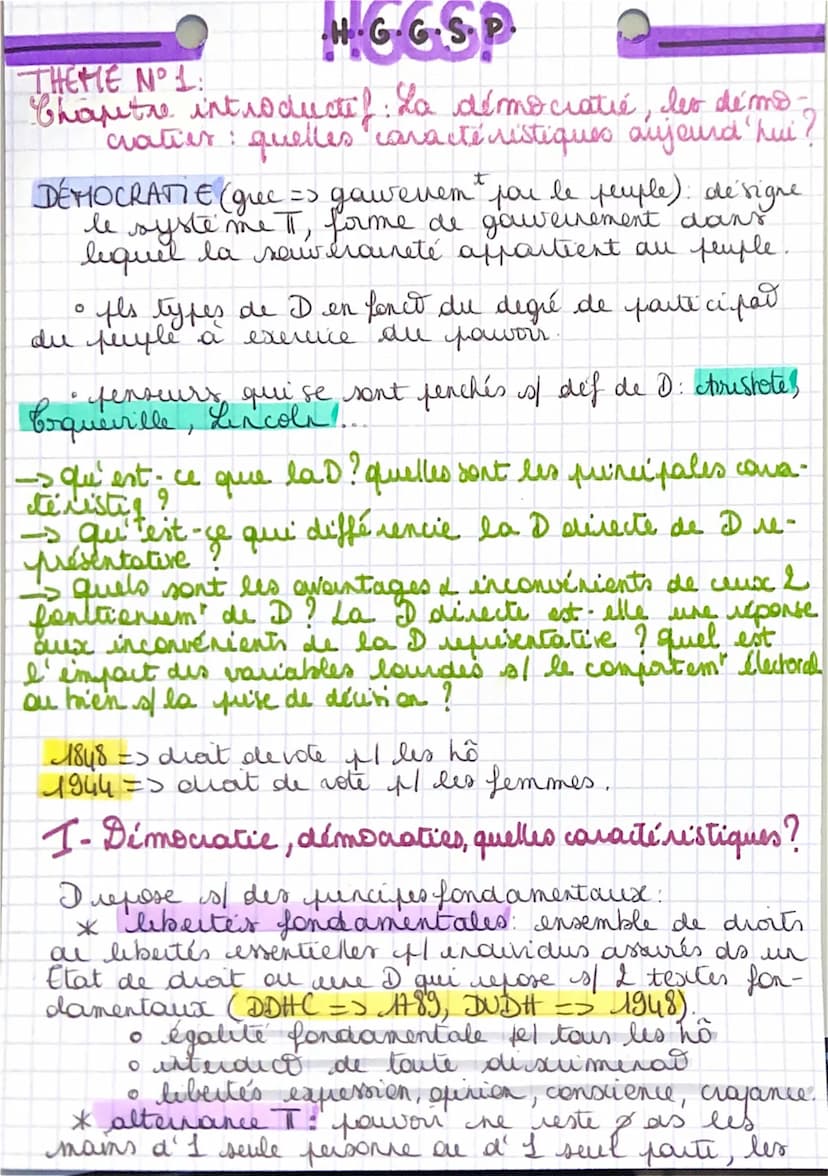 H.G.G.S.P.
THÈME N°1:
Chapitre introductif: La démocratie, les démo-
craties : quelles caractéristiques aujourd'hui?
DÉMOCRATIE (grec => gouvernem^t par le peuple): désigne
le système π, forme de gouvernement dans
lequel la souveraineté appartient au peuple.
° pls types de D en fonct° du degré de participat°
du peuple à exercice du pouvoir.
° penseurs qui se sont penchés s/ déf de D: Aristote,
Tocqueville, Lincoln...
-> qu'est-ce que la D? quelles sont les principales cara-
téristiq ?
-> qu'est-ce qui différencie la D directe de D re-
présentative ?
-> quels sont les avantages & inconvénients de ceux 2
fonctionnem^t de D? La D directe est-elle une réponse
aux inconvénients de la D représentative ? quel est
l'impact des variables lourdes s/ le comportem^t électoral
ou bien s/ la prise de décision ?
1848 => droit de vote p/ les hô
1944 => droit de vote p/ les femmes.
I- Démocratie, démocraties, quelles caractéristiques?
D repose s/ des principes fondamentaux:
* libertés fondamentales: ensemble de droits
ou libertés essentielles p/ individus assurés ds un
État de droit ou une D qui repose s/ 2 textes fon-
damentaux (DDHC => 1789, DUDH => 1948).
° égalité fondamentale p/ tous les hô
° interdict° de toute discriminat°
° libertés expression, opinion, conscience, croyance.
* alternance π: pouvoir ne reste ø ds les
mains d'1 seule personne ou d'1 seul parti, les